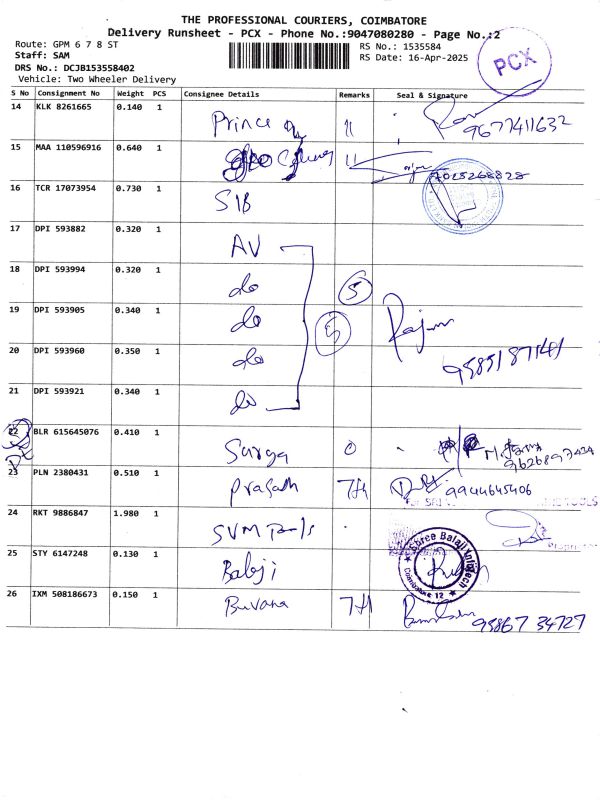 THE PROFESSIONAL COURIERS, COIMBATORE
Delivery Runsheet - PCX - Phone No.:9047080280 - Page No.:2
Route: GPM 6 7 8 ST
RS No.: 1535584
Staff: SAM
RS Date: 16-Apr-2025
PCX
DRS No.: DCJB153558402
Vehicle: Two Wheeler Delivery
S No Consignment No Weight PCS Consignee Details Remarks Seal & Signature
14 KLK 8261665 0.140 1 Prince 11 9677411632
15 MAA 110596916 0.640 1 11 7025268828
16 TCR 17073954 0.730 1 SIB
17 DPI 593882 0.320 1 AV
18 DPI 593994 0.320 1 do 5
19 DPI 593905 0.340 1 do 5
20 DPI 593960 0.350 1 do 9585187141
21 DPI 593921 0.340 1 do
22 BLR 615645076 0.410 1 Surya 0 9626897434
23 PLN 2380431 0.510 1 Prasath 7H 9944645406
24 RKT 9886847 1.980 1 SVM Tools
25 STY 6147248 0.130 1 Balaji Shree Balaji Infotech Coimbatore 12
26 IXM 508186673 0.150 1 Buvana 7H 95867 34727